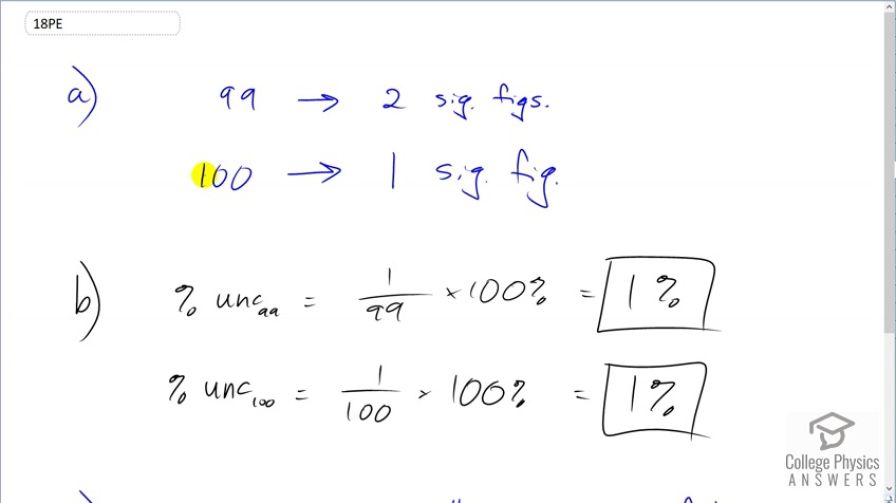 18PE
a) 99 → 2 sig. figs.
100 → 1 sig. fig.
b) % unc₉₉ = 1/99 × 100% = 1%
% unc₁₀₀ = 1/100 × 100% = 1%
College Physics
ANSWERS